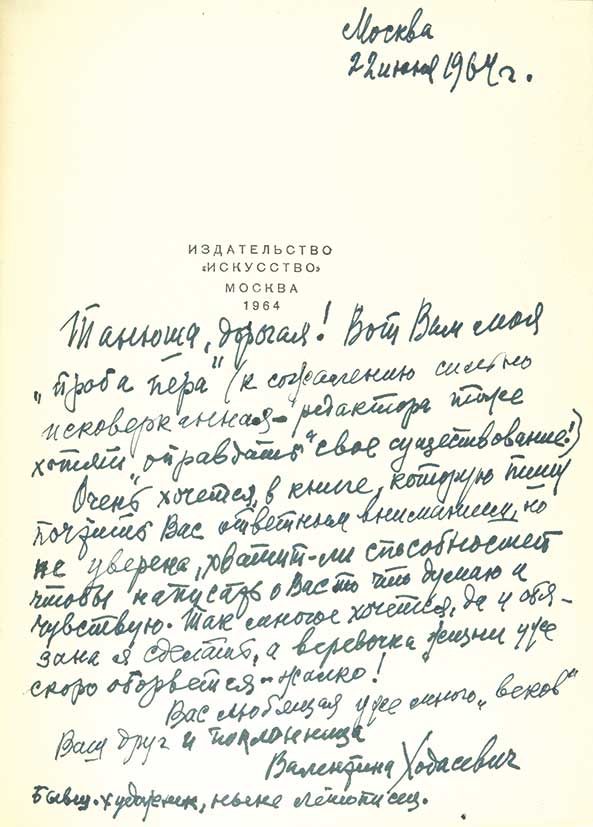 Москва
22 июня 1964 г.
ИЗДАТЕЛЬСТВО
«ИСКУССТВО»
МОСКВА
1964
Танюша, дорогая! Вот Вам моя
„проба пера" (к сожалению сильно
исковерканная – редактора тоже
хотят „оправдать" свое существование!)
Очень хочется, в книге, которую пишу
почтить Вас ответным вниманием, но
не уверена, хватит-ли способностей
чтобы написать о Вас то что думаю и
чувствую. Так многое хочется, да и обя-
зана я сделать, а веревочка жизни уже
скоро оборвется – жалко!
Вас любящая уже много „веков"
Ваш друг и поклонница
Валентина Ходасевич
бывш. художник, ныне летописец.